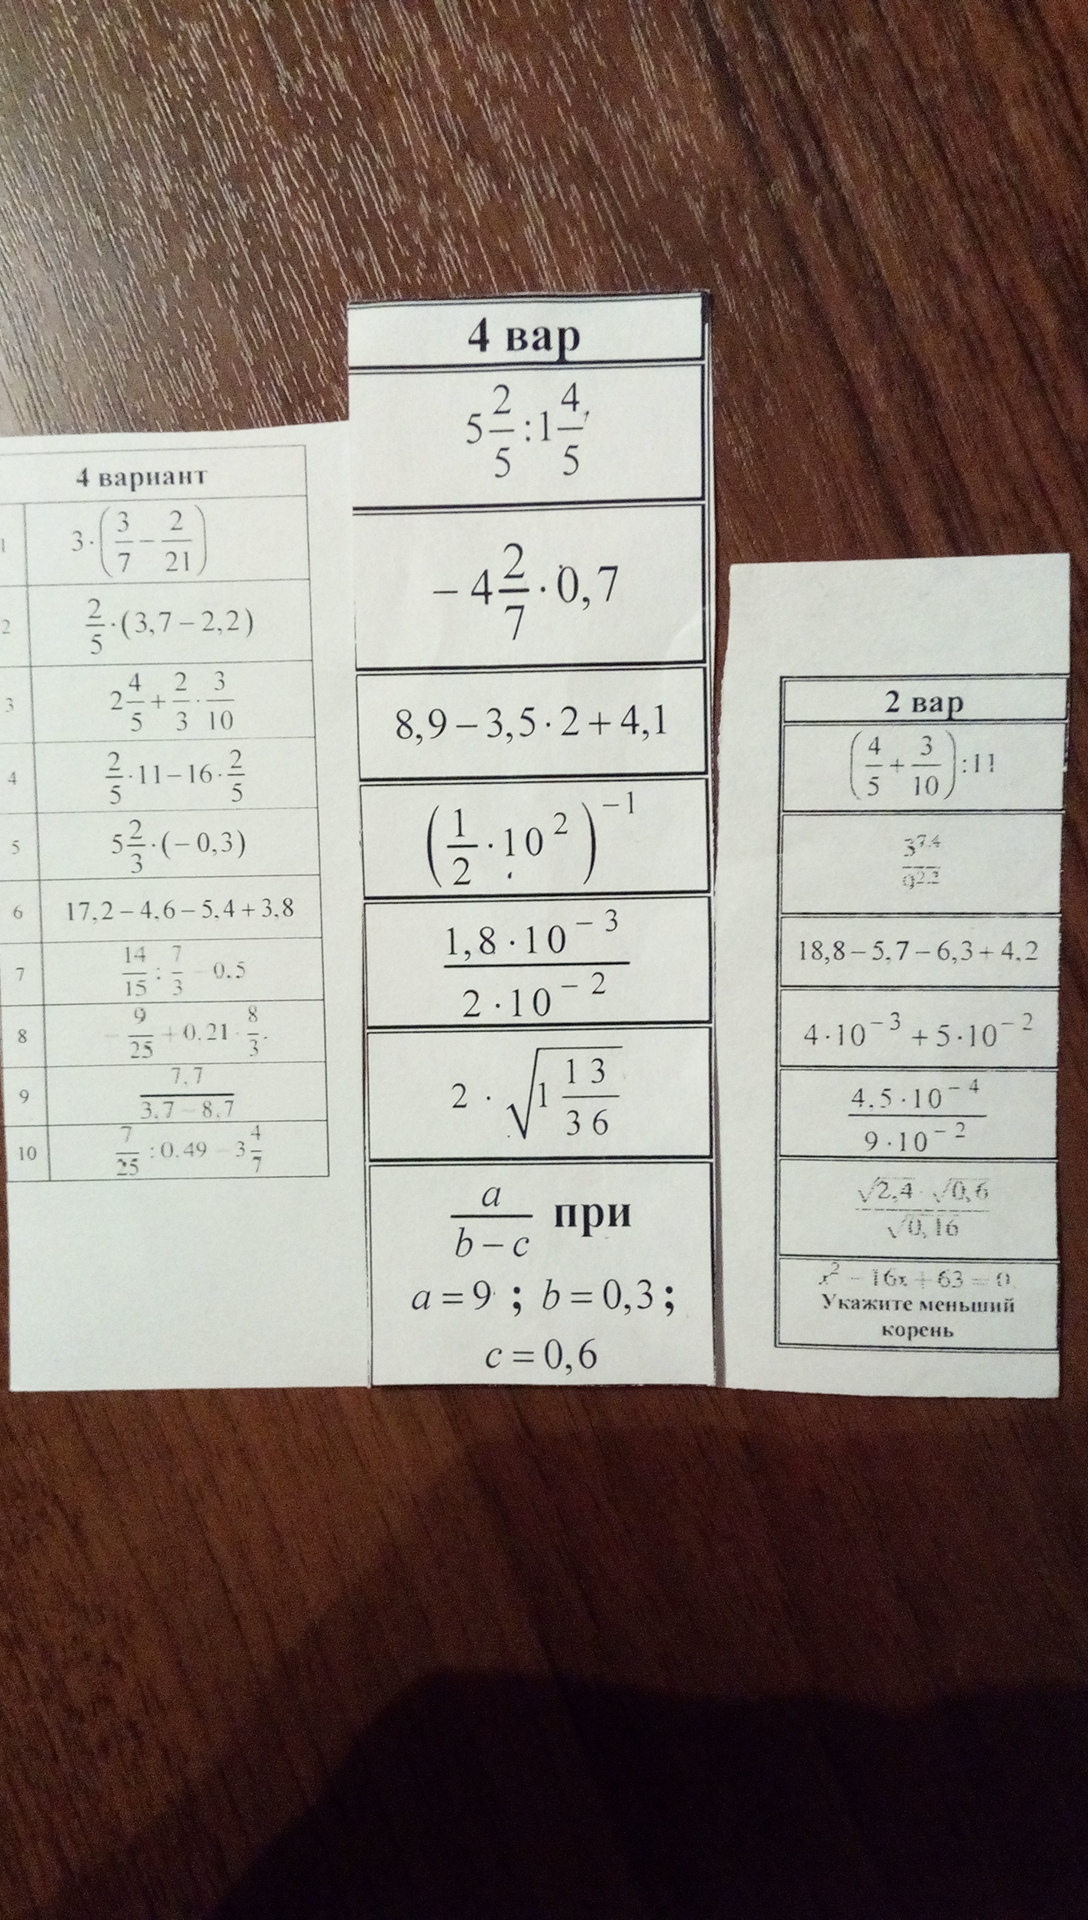 4 вариант
1 3·(3/7 − 2/21)
2 2/5·(3,7−2,2)
3 2 4/5 + 2/3·3/10
4 2/5·11−16·2/5
5 5 2/3·(−0,3)
6 17,2−4,6−5,4+3,8
7 14/15 : 7/3 − 0.5
8 − 9/25 + 0.21 · 8/3.
9 7,7/(3,7−8,7)
10 7/25 : 0.49 − 3 4/7
4 вар
5 2/5 : 1 4/5
− 4 2/7 · 0,7
8,9−3,5·2+4,1
(1/2·10²)⁻¹
(1,8·10⁻³)/(2·10⁻²)
2 · √(1 13/36)
a/(b−c) при
a=9 ; b=0,3;
c=0,6
2 вар
(4/5 + 3/10):11
3^7.4/9^2.2
18,8−5,7−6,3+4,2
4·10⁻³+5·10⁻²
(4,5·10⁻⁴)/(9·10⁻²)
(√2,4 · √0,6)/√0,16
x² − 16x + 63 = 0
Укажите меньший
корень